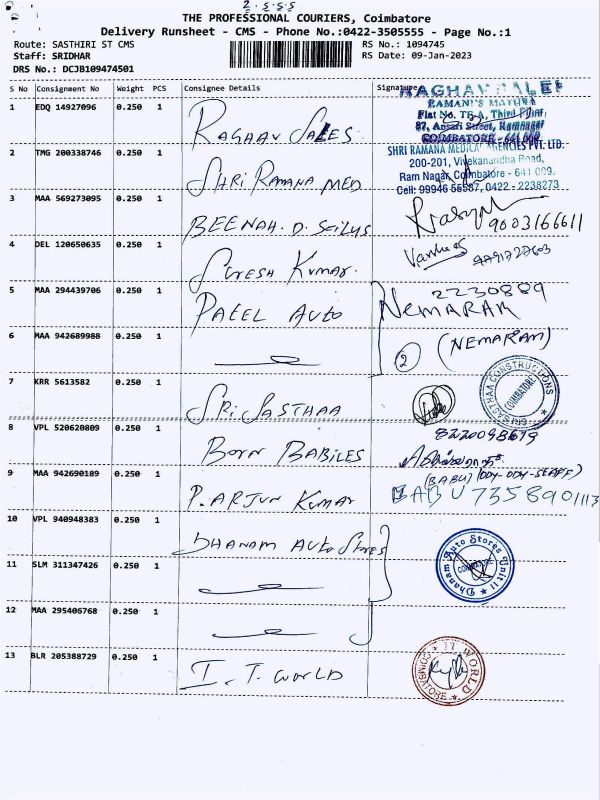 2-5-5-5
THE PROFESSIONAL COURIERS, Coimbatore
Delivery Runsheet - CMS - Phone No.:0422-3505555 - Page No.:1
Route: SASTHIRI ST CMS
RS No.: 1094745
Staff: SRIDHAR
RS Date: 09-Jan-2023
DRS No.: DCJB109474501
S No Consignment No Weight PCS Consignee Details Signature
RAGHAV SALES
RAMANI'S MAYURA
Flat No. TF-A, Third Floor
87, Ansari Street, Ramnagar
COIMBATORE - 641 009.
1 EDQ 14927096 0.250 1 RAGHAV SALES
SHRI RAMANA MEDICAL AGENCIES PVT. LTD.
200-201, Vivekanandha Road,
Ram Nagar, Coimbatore - 641 009.
Cell: 99946 56587, 0422 - 2238273
2 TMG 200338746 0.250 1 SHRI RAMANA MED
3 MAA 569273095 0.250 1 BEENAH. D.
9003166611
4 DEL 120650635 0.250 1 SURESH KUMAR.
5 MAA 294439706 0.250 1 PATEL AUTO
2230889
NEMARAM
6 MAA 942689988 0.250 1
2 (NEMARAM)
7 KRR 5613582 0.250 1 SRI SASTHAA
SRI SASTHAA CONSTRUCTIONS
COIMBATORE
8 VPL 520620809 0.250 1 BORN BABIES
8220098679
9 MAA 942690189 0.250 1 P. ARJUN KUMAR
BABU 7358901113
10 VPL 940948383 0.250 1 DHANAM AUTO STORES
Dhanam Auto Stores Unit II
COIMBATORE
11 SLM 311347426 0.250 1
12 MAA 295406768 0.250 1
13 BLR 205388729 0.250 1 I. T. WORLD
IT WORLD
COIMBATORE